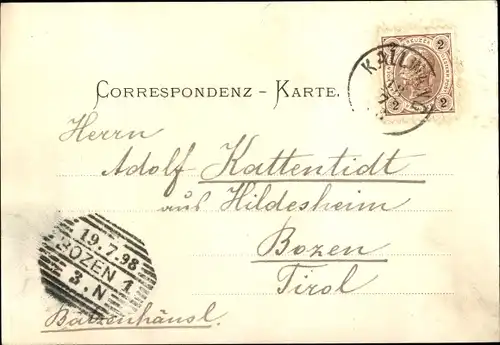 2 KREUZER 2
2 2
CORRESPONDENZ - KARTE.
Herrn
Adolf Kattentidt
aus Hildesheim
Bozen
Tirol
19.7.98
BOZEN 1
3.N
Batzenhäusl.